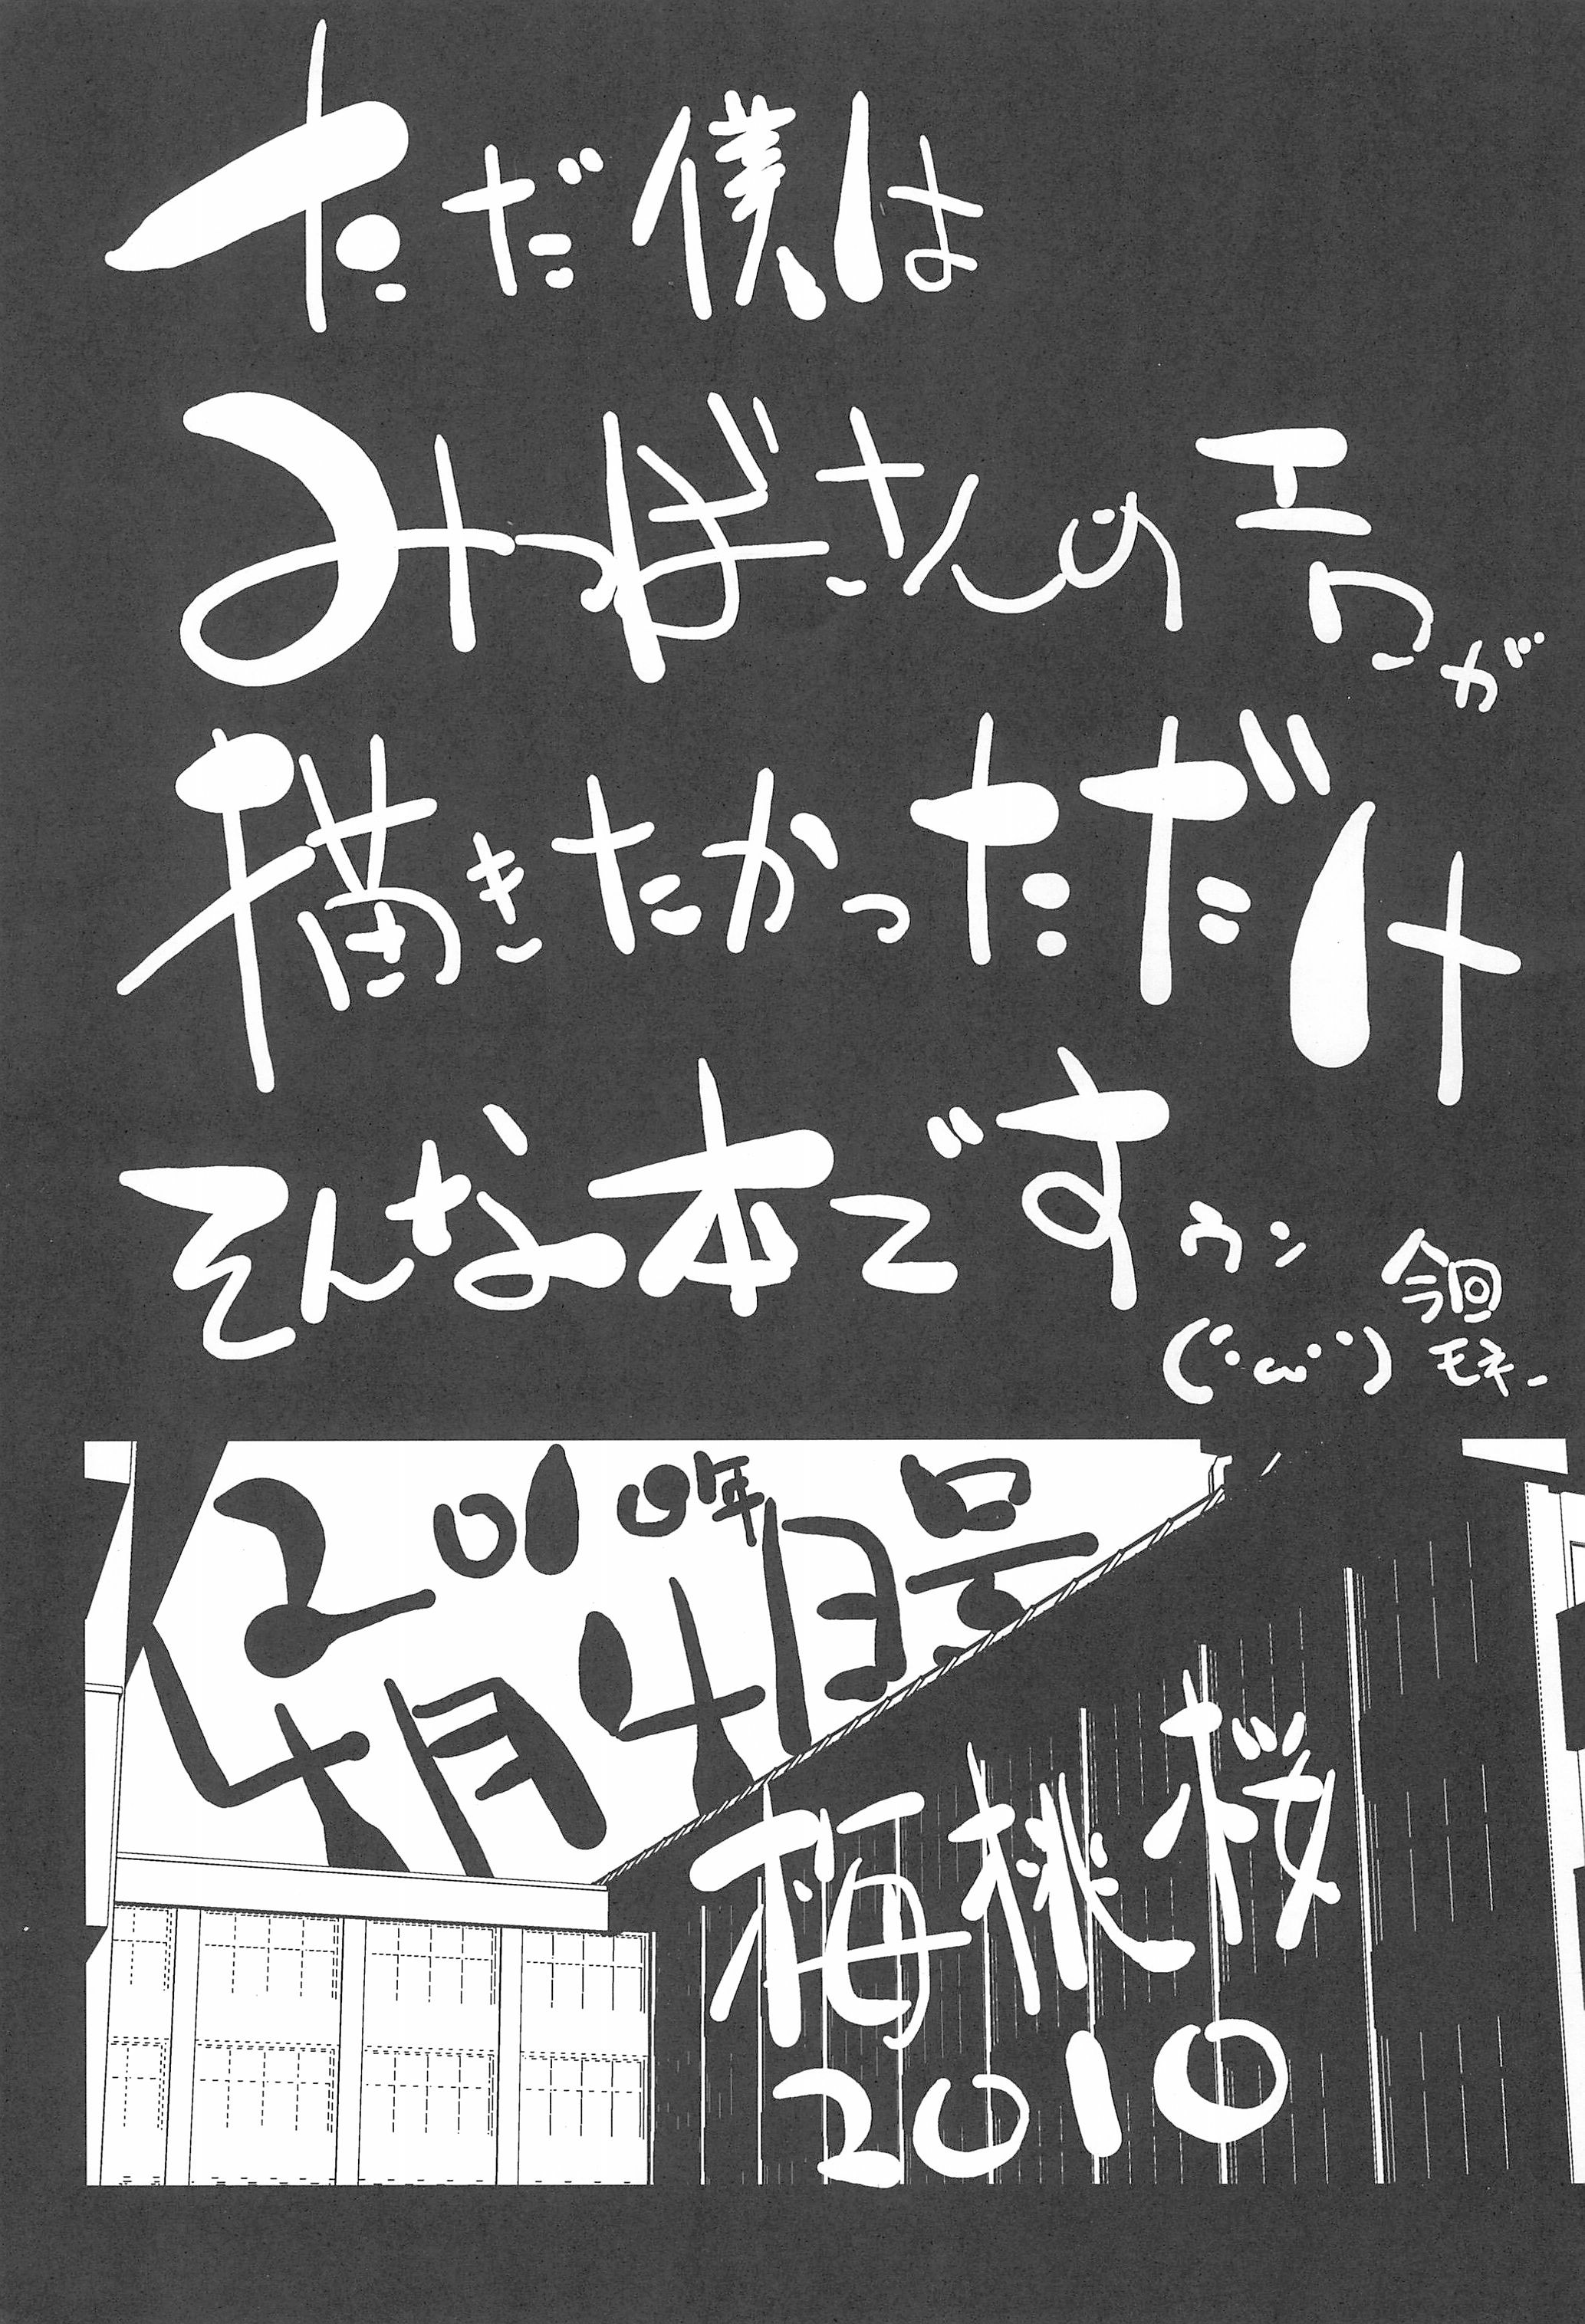 ただ僕は
みつばさんのエロが
描きたかっただけ
そんな本です
ウン
(´・ω・`)
今回
モネ-
2010年
4月号
梅桃桜
2010